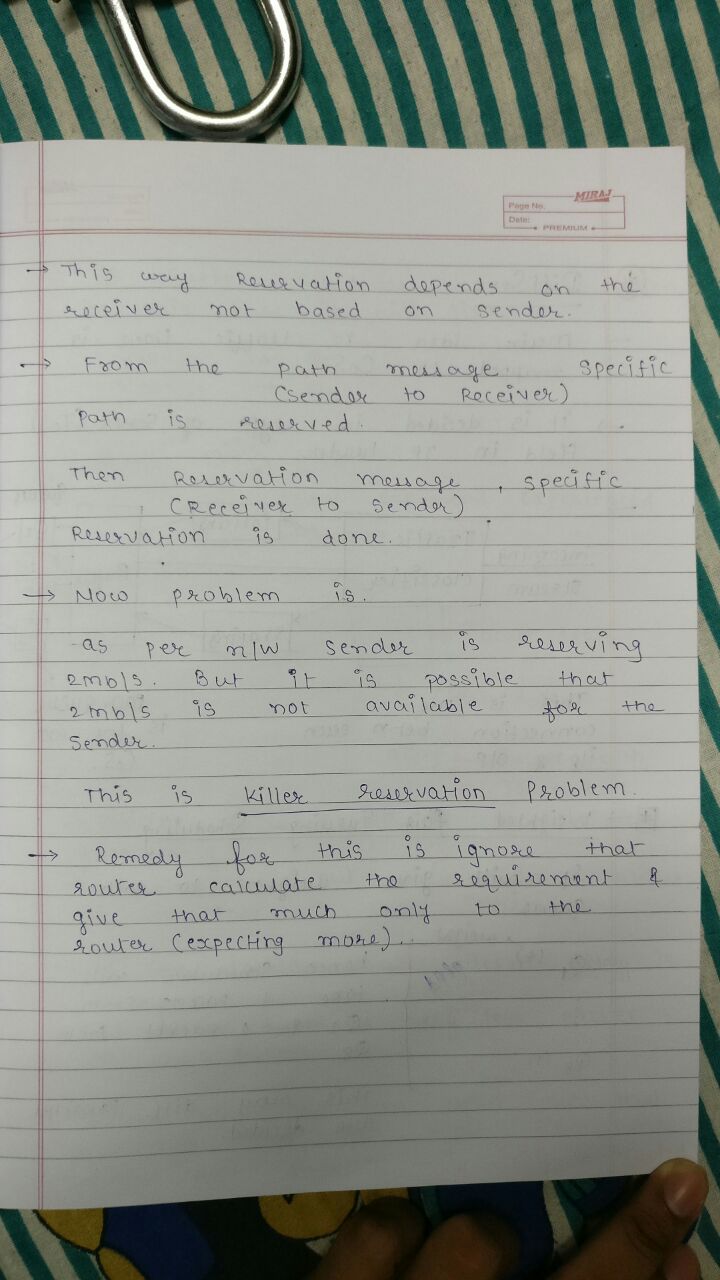 MIRAJ
Page No.
Date:
PREMIUM
→ This way Reservation depends on the
receiver not based on sender.
→ From the path message specific
(sender to Receiver)
path is reserved.
Then Reservation message, specific
(Receiver to sender)
Reservation is done.
→ Now problem is.
as per n/w sender is reserving
2mb/s. But it is possible that
2mb/s is not available for the
sender.
This is killer reservation problem.
→ Remedy for this is ignore that
router calculate the requirement &
give that much only to the
router (expecting more)..